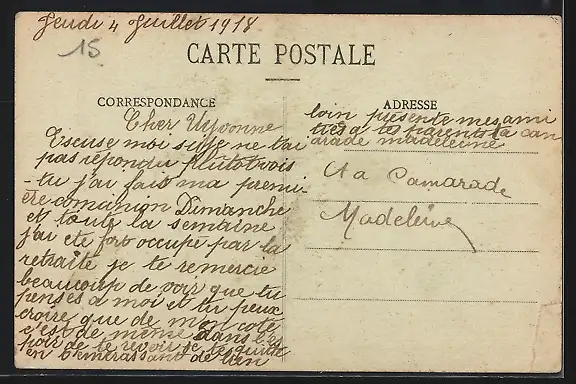 Jeudi 4 Juillet 1918
15
CARTE POSTALE
CORRESPONDANCE
ADRESSE
Cher Uyvonne
Escuse moi si je ne t'ai
pas répondu plutot vois
-tu j'ai fais ma premi
ère comunion Dimanche
et toute la semaine
j'ai ete fort occupé par la
retraite je te remercie
beaucoup de voir que tu
penses a moi et tu peux
croire que de mon coté
c'est de même dans l'es
poir de te revoir je te quitte
en t'embrassant de bien
loin présente mes ami
tiés a tes parents ta cam
arade madeleine
Ta Camarade
Madeleine